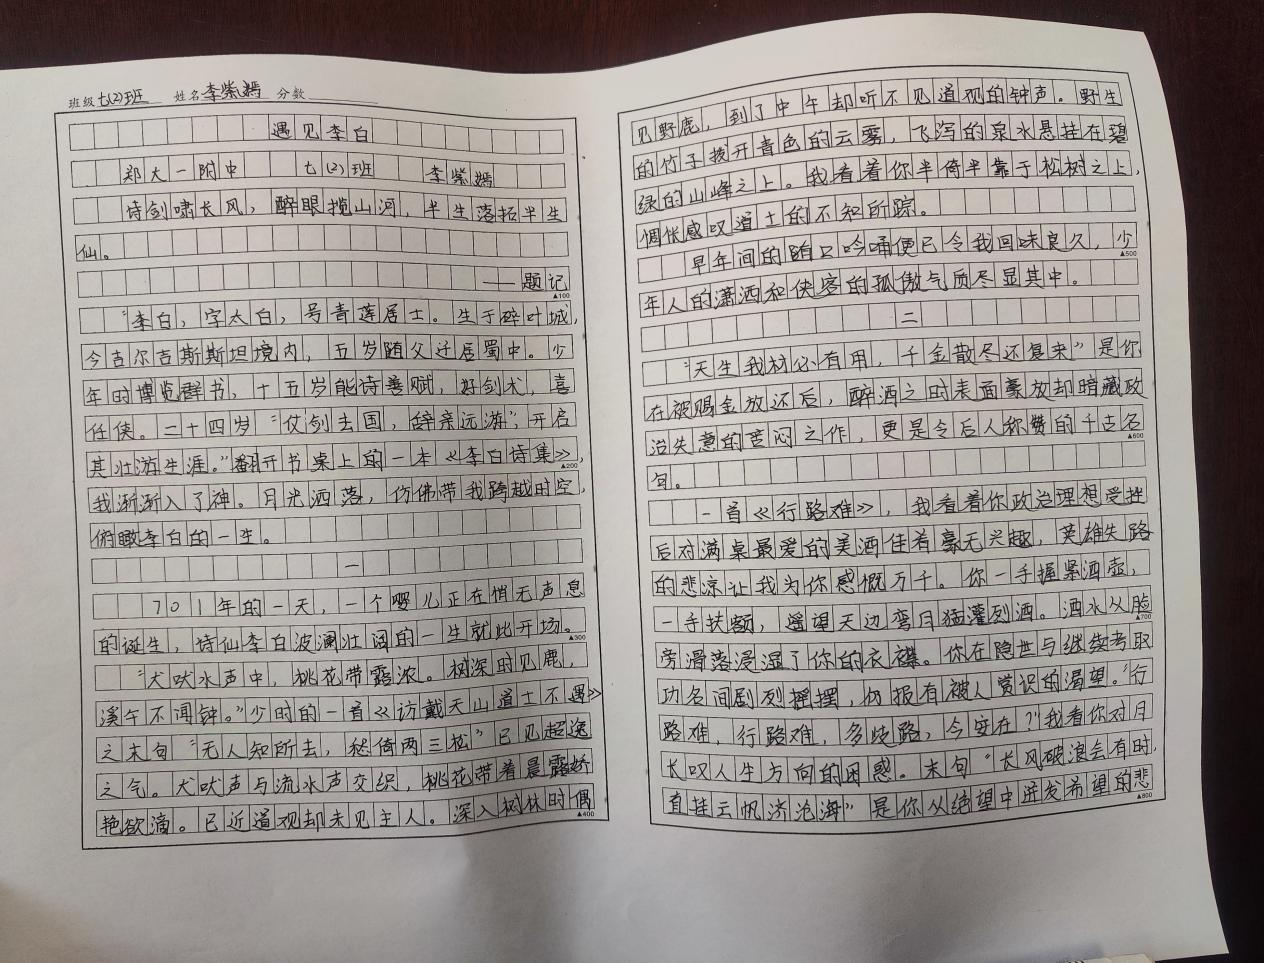 班级 七(2)班 姓名 李紫嫣 分数
遇见李白
郑大一附中 七(2)班 李紫嫣
诗剑啸长风，醉眼揽山河，半生落拓半生
仙。
——题记
▲100
“李白，字太白，号青莲居士。生于碎叶城，
今吉尔吉斯斯坦境内，五岁随父迁居蜀中。少
年时博览群书，十五岁能诗善赋，好剑术，喜
任侠。二十四岁“仗剑去国，辞亲远游”，开启
其壮游生涯。”翻开书桌上的一本《李白诗集》，
▲200
我渐渐入了神。月光洒落，仿佛带我跨越时空，
俯瞰李白的一生。
一
701年的一天，一个婴儿正在悄无声息
的诞生，诗仙李白波澜壮阔的一生就此开场。
▲300
“犬吠水声中，桃花带露浓。树深时见鹿，
溪午不闻钟。”少时的一首《访戴天山道士不遇》
之末句“无人知所去，愁倚两三松”已见超逸
之气。犬吠声与流水声交织，桃花带着晨露娇
艳欲滴。已近道观却未见主人。深入树林时偶
▲400
见野鹿，到了中午却听不见道观的钟声。野生
的竹子拨开青色的云雾，飞泻的泉水悬挂在碧
绿的山峰之上。我看着你半倚半靠于松树之上，
惆怅感叹道士的不知所踪。
早年间的随口吟诵便已令我回味良久，少
▲500
年人的潇洒和侠客的孤傲气质尽显其中。
二
“天生我材必有用，千金散尽还复来”是你
在被赐金放还后，醉酒之时表面豪放却暗藏政
治失意的苦闷之作，更是令后人称赞的千古名
▲600
句。
一首《行路难》，我看着你政治理想受挫
后对满桌最爱的美酒佳肴毫无兴趣，英雄失路
的悲凉让我为你感慨万千。你一手握紧酒壶，
一手扶额，遥望天边弯月猛灌烈酒。酒水从脸
▲700
旁滑落浸湿了你的衣襟。你在隐世与继续考取
功名间剧烈摇摆，仍报有被人赏识的渴望。“行
路难，行路难，多歧路，今安在？”我看你对月
长叹人生方向的困惑。末句“长风破浪会有时，
直挂云帆济沧海”是你从绝望中迸发希望的悲
▲800